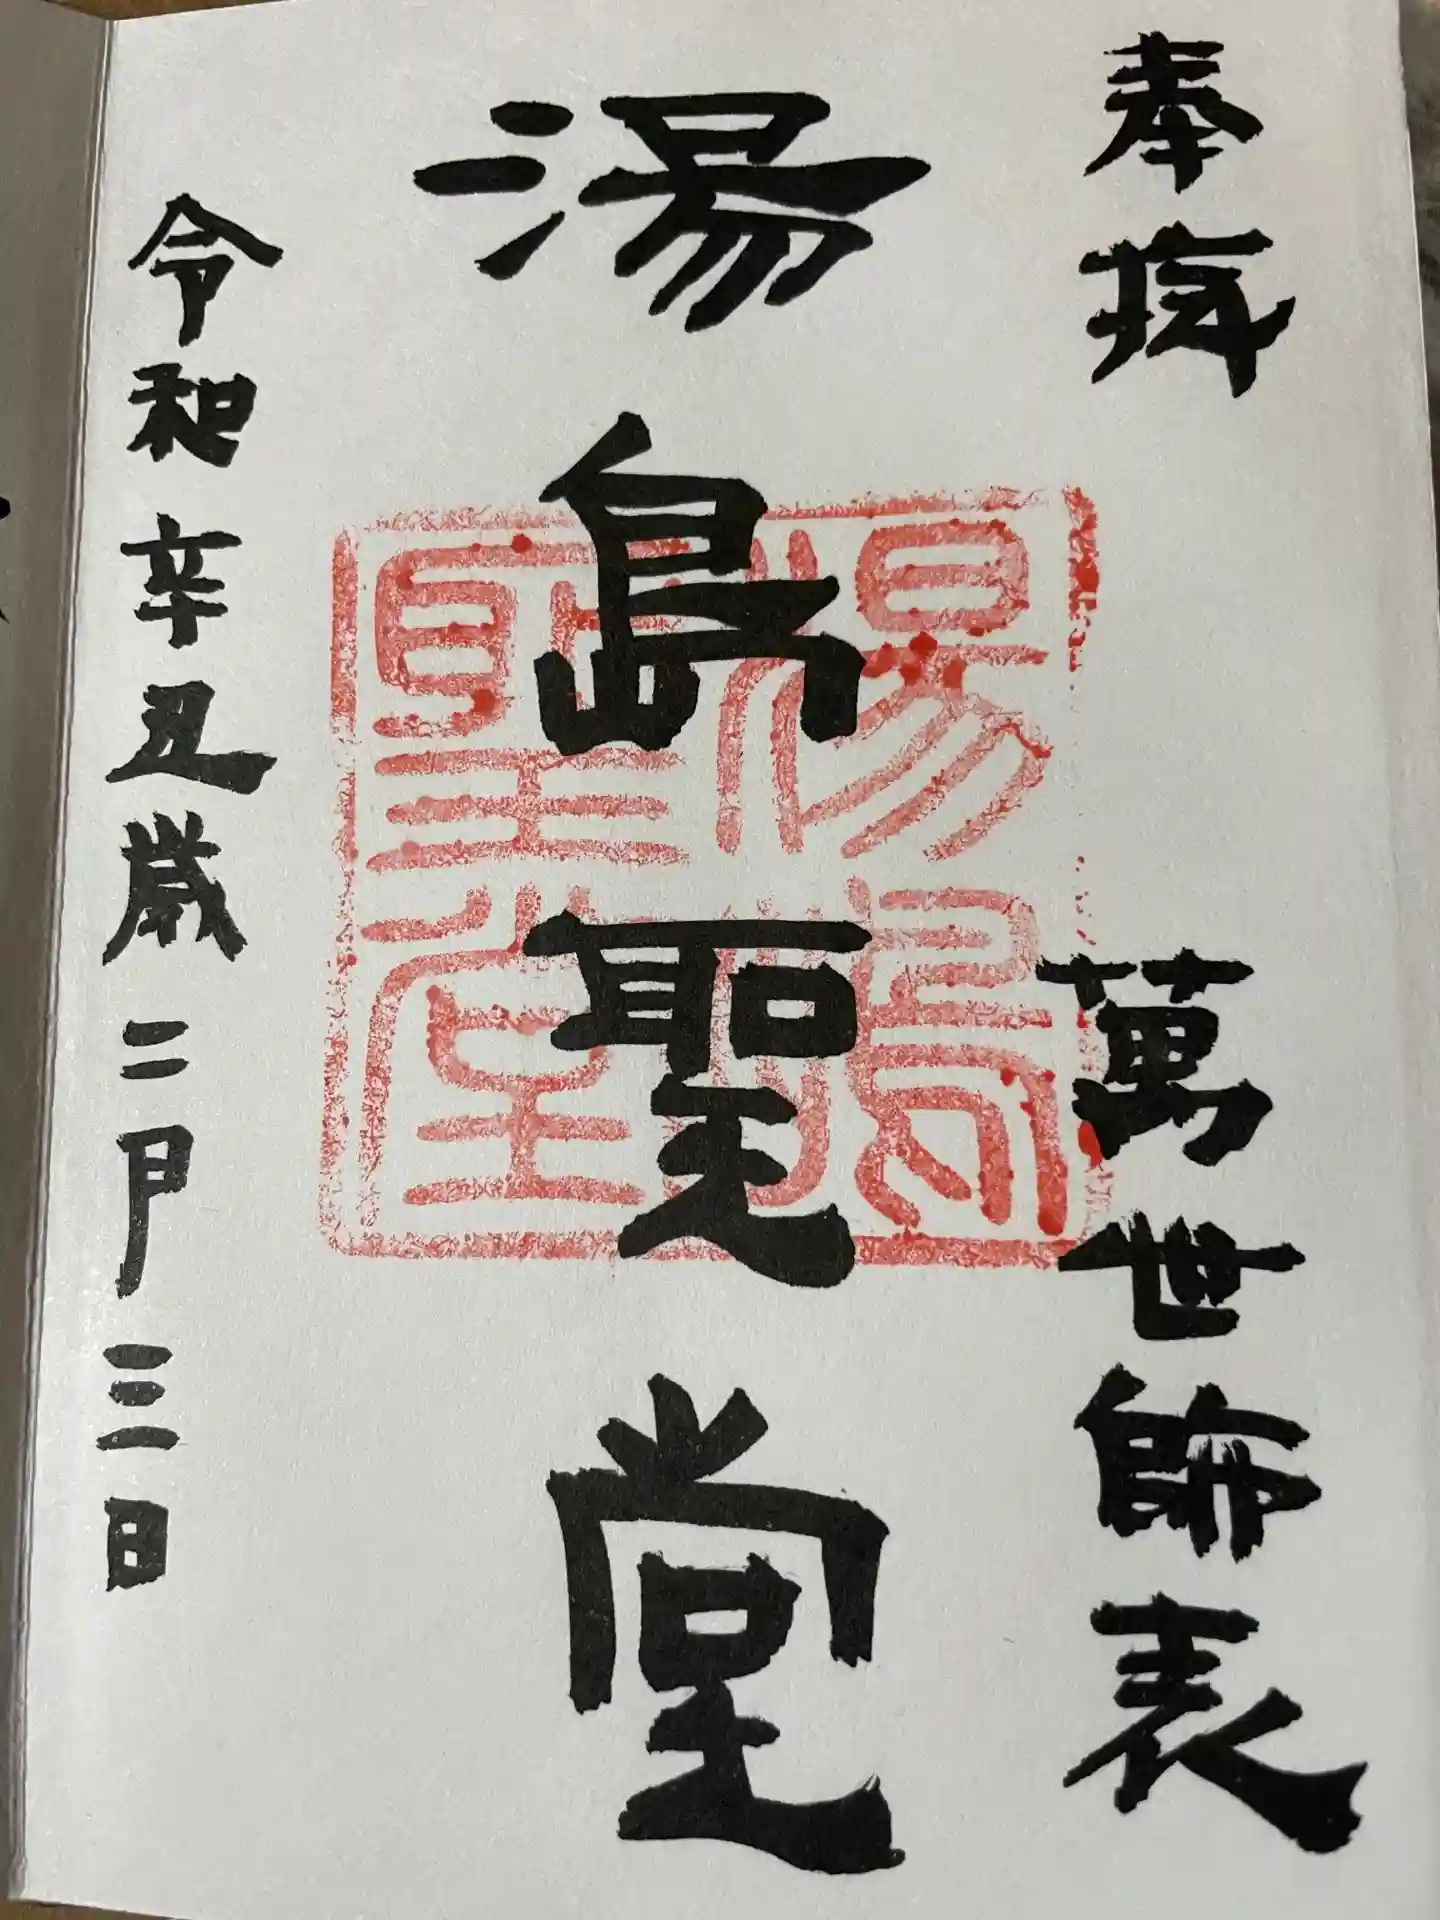 奉拝 萬世師表
湯島聖堂
令和辛丑歳二月三日
湯島
聖堂